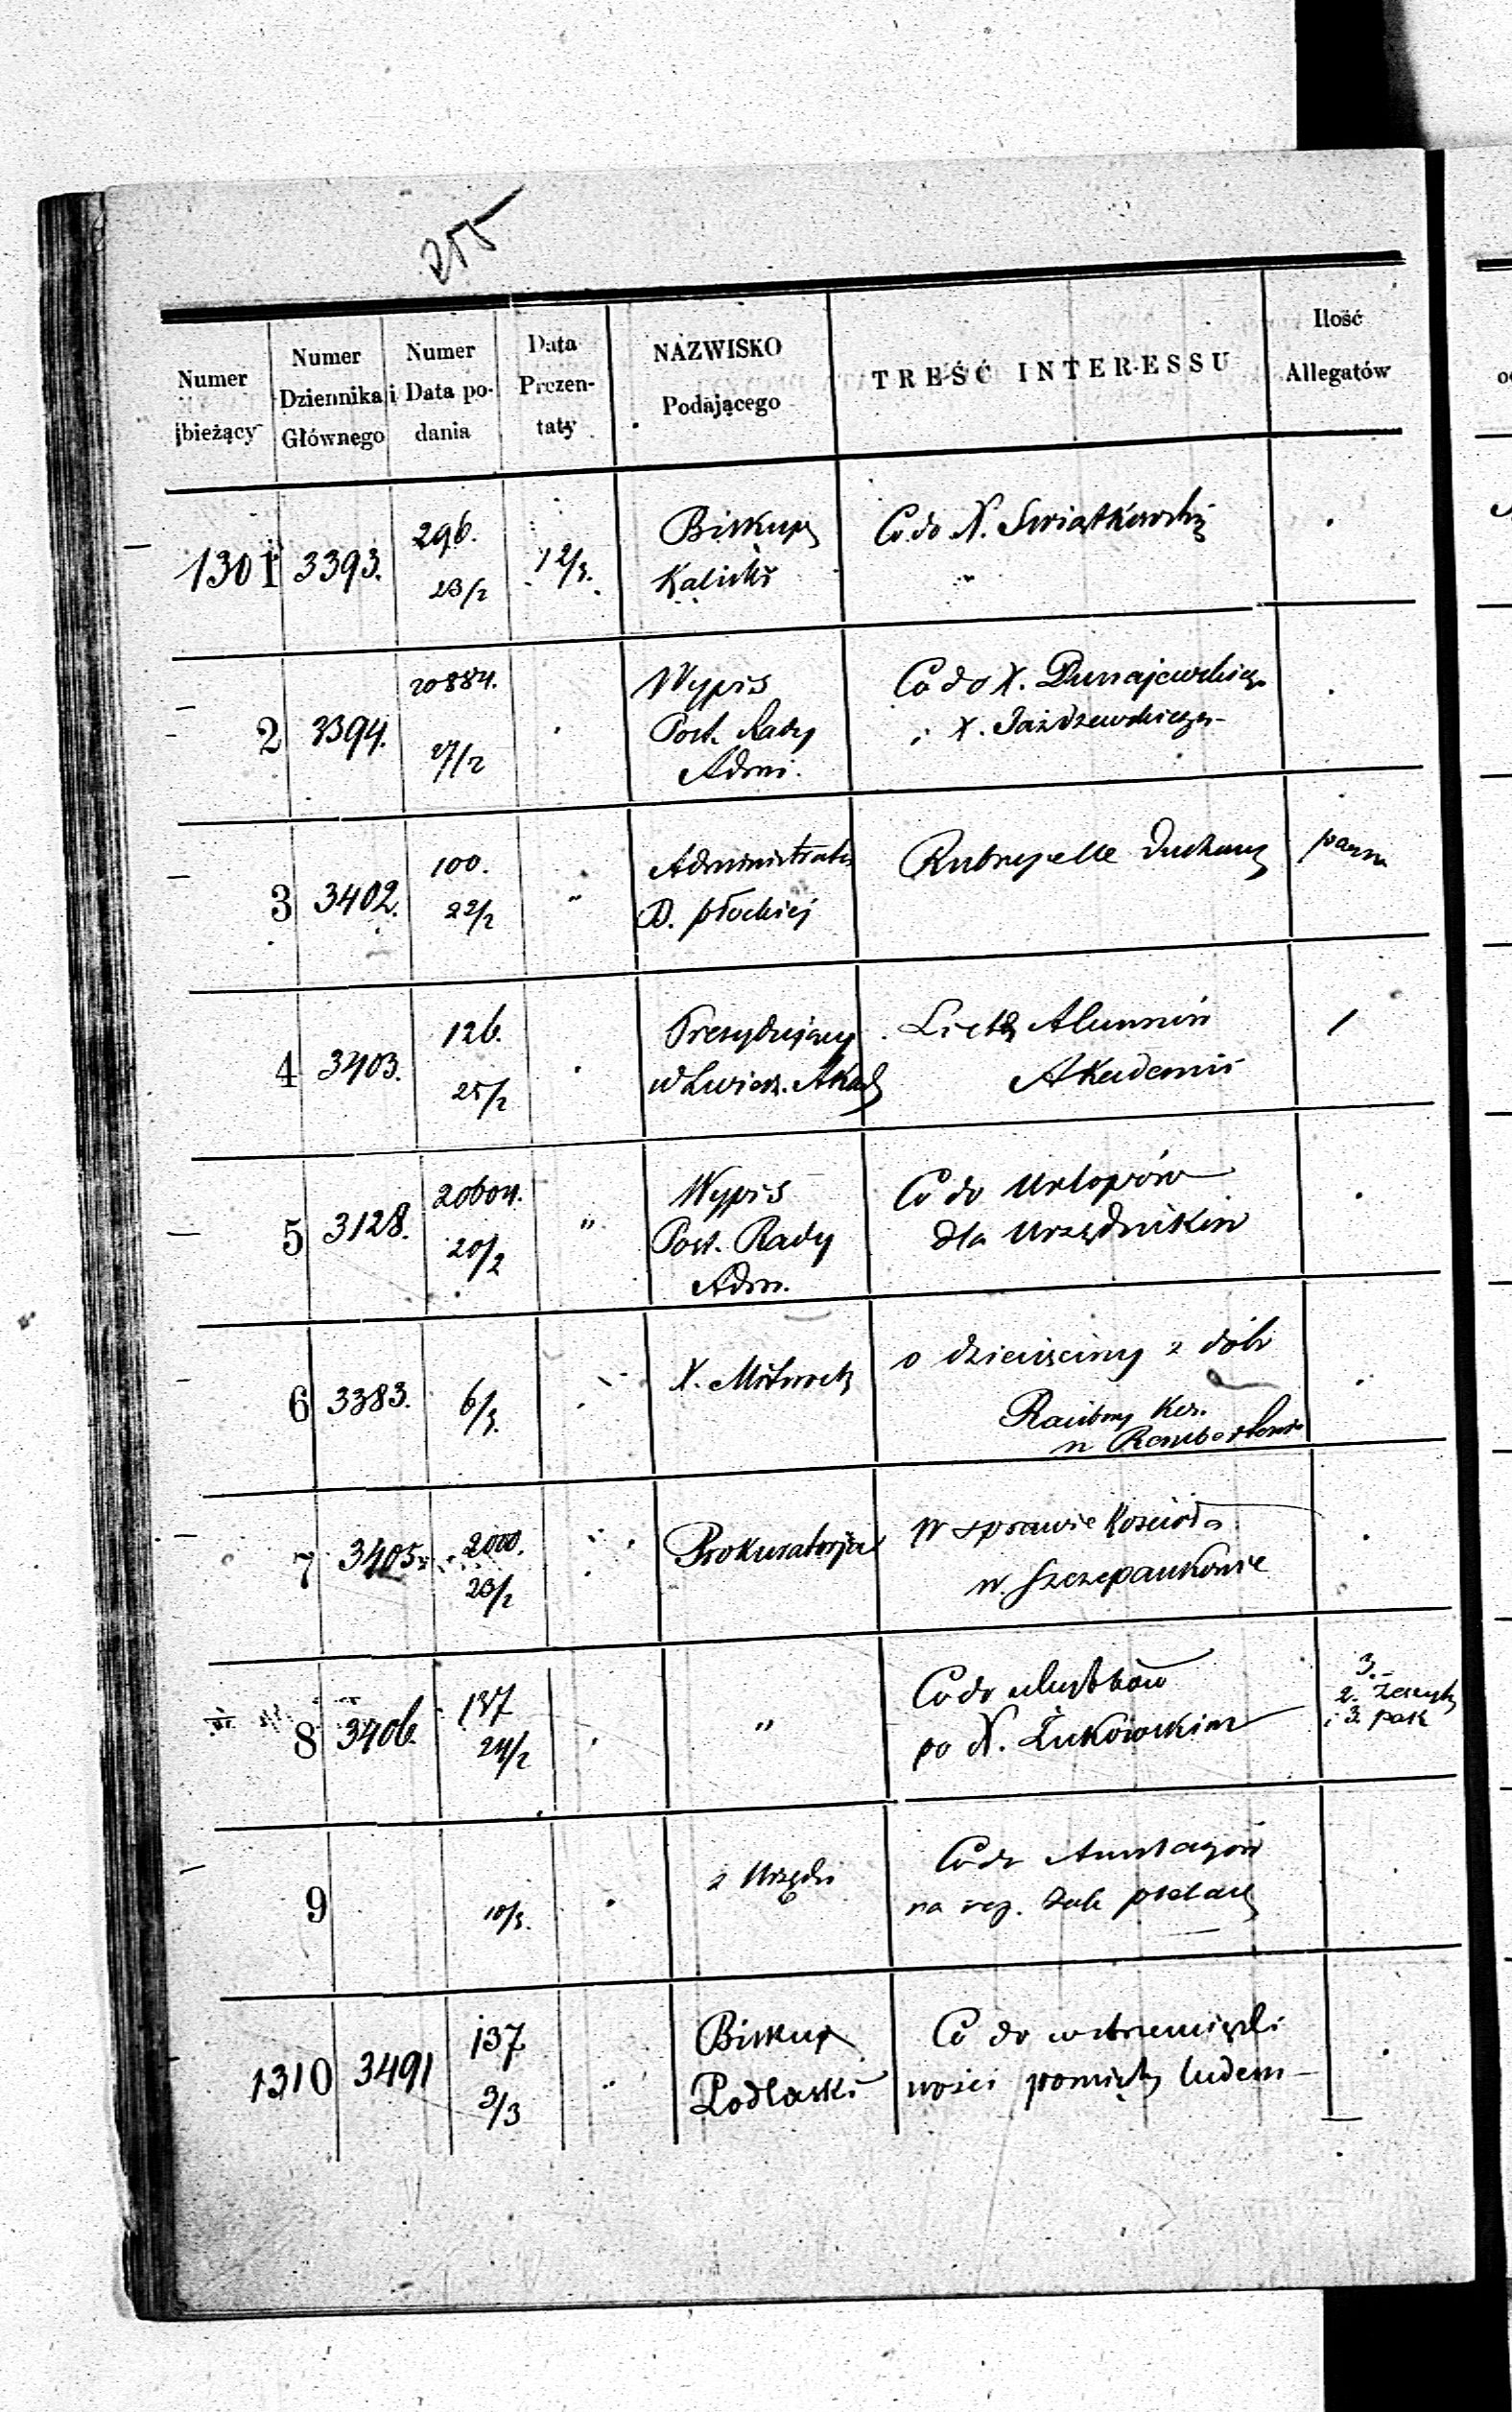 255
Numer bieżący
Numer Dziennika Głównego
Numer i Data podania
Data Prezentaty
NAZWISKO Podającego
TREŚĆ INTERESSU
Ilość Allegatów
1301 3393. 296. 23/2 12/3. Biskup Kaliski Co do X.
2 3394. 20884. 27/2 Wypis Post. Rady Admi. Co do X. Dunajewskiego i X.
3 3402. 100. 22/2 " Administrator D. płockiej Rubrycelle
4 3403. 126. 25/2 Prezydujący w Akad Listy Alumnów Akademii 1
5 3128. 20604. 20/2 " Wypis Post. Rady Adm. Co do Urlopów dla Urzędników
6 3383. 6/3. X. o dziesięciny z dóbr
7 3405. 2000. 23/2 Prokuratorja W sprawie Kościoła w Szczepankowie
8 3406. 137 24/2 " Co do po X. Łukowskim 3. 2. Zeszyty i 3 pak
9 10/3. z Urzędu Co do na
1310 3491 137 3/3 " Biskup Podlaski Co do wstrzemięźli ności pomiędzy ludem